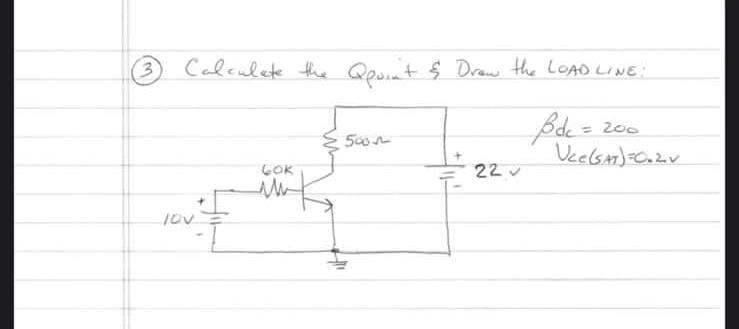 ③ Calculate the Qpoint & Draw the LOAD LINE:
βdc = 200
500Ω
Vce(SAT)=0.2v
60K
+
22 v
-
+
10V
-